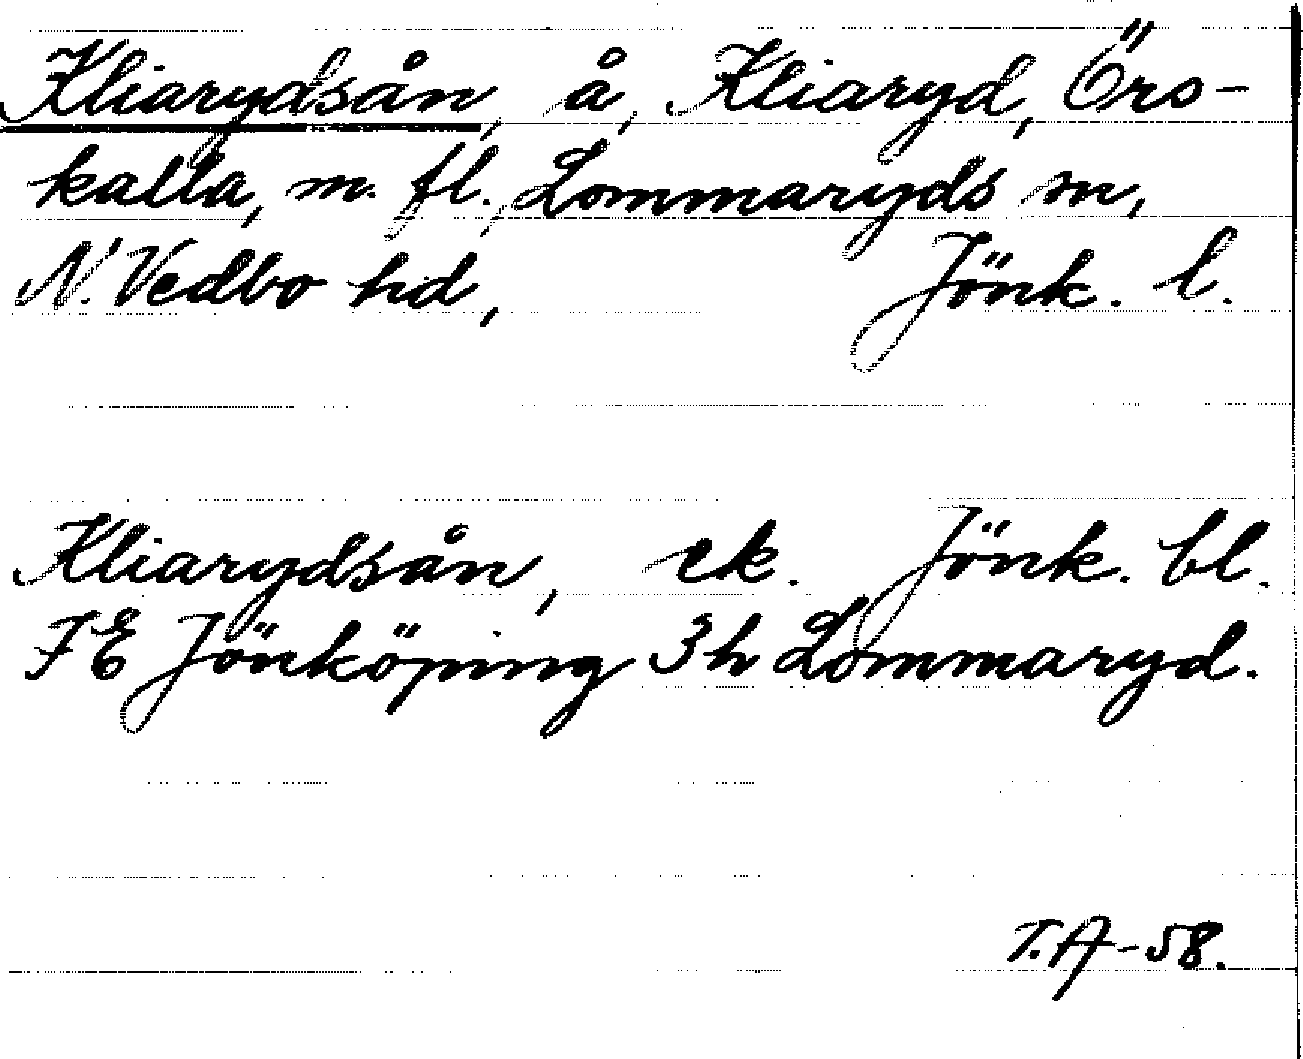 Kliarydsån, å, Kliaryd, Örs-
kalla, m. fl., Lommaryds sn,
N. Vedbo hd, Jönk. l.
Kliarydsån, ek. Jönk. bl.
FE Jönköping 3h Lommaryd.
T.A-58.